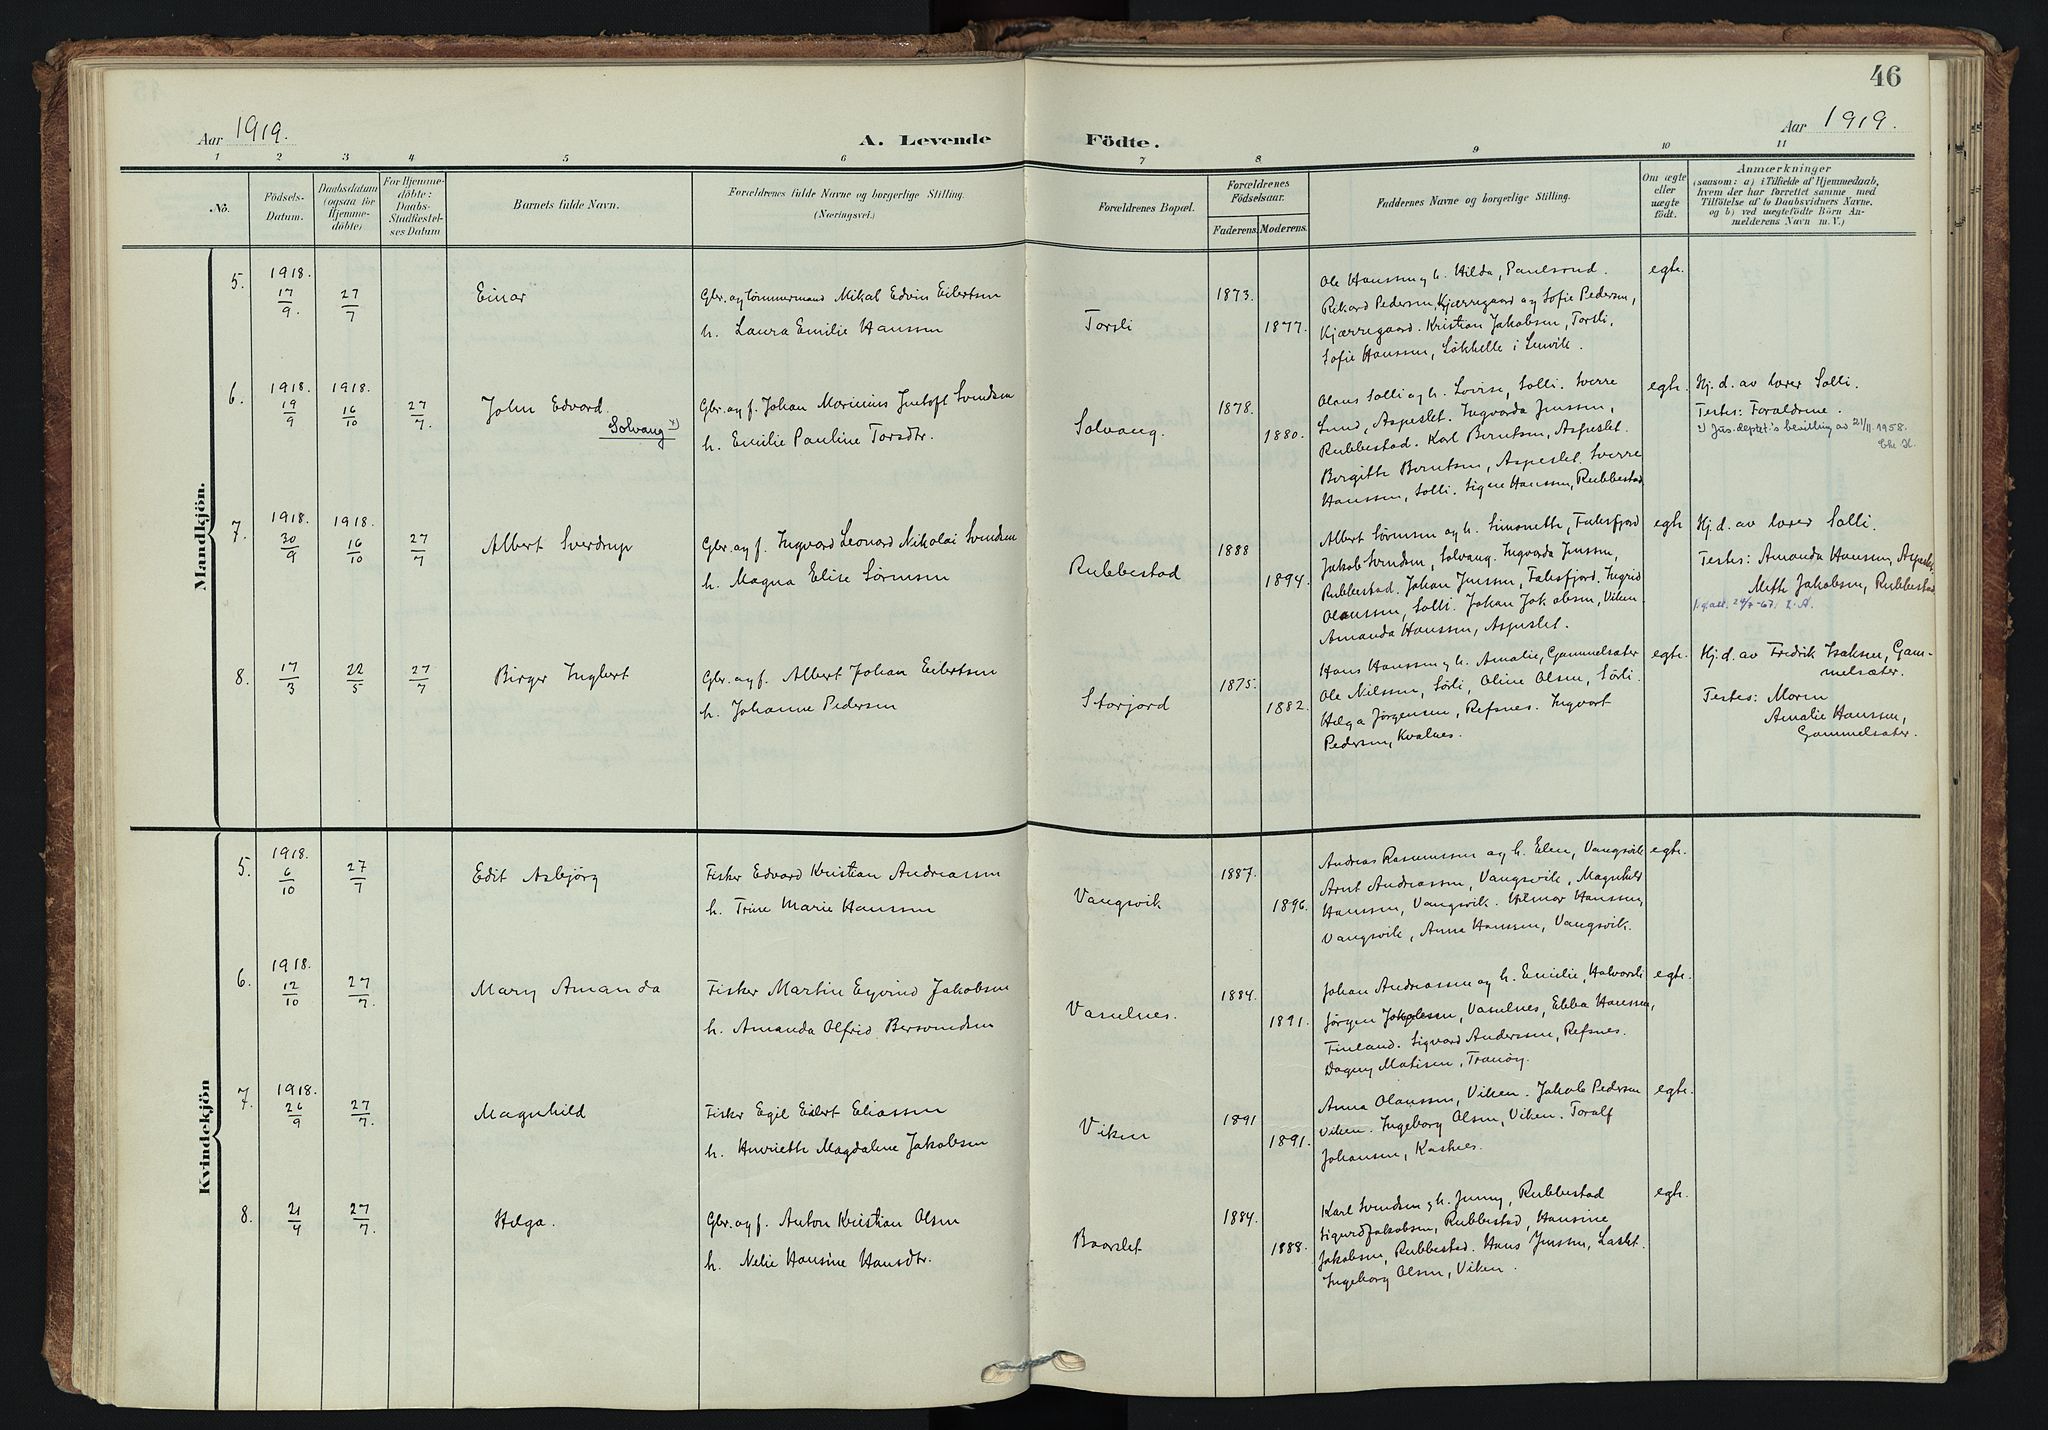 46
Aar 1919.
A. Levende Födte.
Aar 1919.
1 2 3 4 5 6 7 8 9 10 11
No.
Födsels-
Datum.
Daabsdatum
(ogsaa for
Hjemme-
döbte)
For Hjemme-
döbte:
Daabs-
Stadfæstel-
ses Datum
Barnets fulde Navn.
Forældrenes fulde Navne og borgerlige Stilling.
(Næringsvei.)
Forældrenes Bopæl.
Forældrenes
Födselsaar.
Faderens. Moderens.
Faddernes Navne og borgerlige Stilling.
Om ægte
eller
uægte
födt.
Anmærkninger
(saasom: a) i Tilfælde af Hjemmedaab,
hvem der har forrettet samme med
Tilföielse af to Daabsvidners Navne.
og b) ved uægtefödte Börn An-
melderens Navn m. V.)
Mandkjön.
5.
1918.
17/9.
27/7
Einar
Gbr. og tømmermand Mikal Edvin Eilertsen
h. Laura Emilie Hanssen
Torsli
1873.
1877.
Ole Hanssen og h. Hilda, Paulsrud.
Rikard Pedersen, Kjærregaard og Sofie Pedersen,
Kjærregaard. Kristian Jakobsen, Torsli,
Sofie Hanssen, Løkhelle i Lenvik.
egte.
6.
1918.
19/9
1918.
16/10
27/7.
John Edvard
Solvang
Gbr. og f. Johan Marinius Gustoft Svendsen
h. Emilie Pauline Torsdtr.
Solvang.
1878.
1880.
Olaus Solli og h. Lovise, Solli. Sverre
Lund, Aspeslet. Ingvarda Jenssen,
Rubbestad. Karl Berntsen, Aspeslet.
Birgitte Berntsen, Aspeslet. Sverre
Hanssen, Solli. Signe Hanssen, Rubbestad
egte.
Hj. d. av lærer Solli.
Testes: Forældrene.
Jus. deptet's bevilling av 21/11. 1958.
7.
1918.
30/9
1918.
16/10
27/7
Albert Sverdrup
Gbr. og f. Ingvard Leonard Nikolai Svendsen
h. Magna Elise Sørensen
Rubbestad
1888
1894.
Albert Sørensen og h. Simonette, Faksfjord
Jakob Svendsen, Solvang. Ingvarda Jenssen,
Rubbestad. Johan Jenssen, Faksfjord. Ingrid
Olaussen, Solli. Johan Jakobsen, Viken.
Amanda Hanssen, Aspeslet.
egte
Hj. d. av lærer Solli.
Testes: Amanda Hanssen, Aspeslet,
Mette Jakobsen, Rubbestad
8.
17/3
22/5
27/7
Birger Ingbert
Gbr. og f. Albert Johan Eilertsen
h. Johanne Pedersen
Storjord
1875.
1882.
Hans Hanssen og h. Amalie, Gammelsæter
Ole Nilssen, Sørli, Oline Olsen, Sørli.
Helga Jørgensen, Refsnes. Ingvart
Pedersen, Kvalnes.
egte.
Hj. d. av Fredrik Isaksen, Gam-
melsæter.
Testes: Moren
Amalie Hanssen,
Gammelsæter.
Kvindekjön
5.
1918.
6/10
27/7
Edit Asbjørg
Fisker Edvard Kristian Andreassen
h. Trine Marie Hanssen
Vangsvik
1887.
1896.
Andreas Rasmussen og h. Elen, Vangsvik
Arnt Andreassen, Vangsvik, Magnhild
Hanssen, Vangsvik. Hilmar Hanssen,
Vangsvik, Anna Hanssen, Vangsvik.
egte.
6.
1918.
12/10
27/7.
Mary Amanda
Fisker Martin Eyvind Jakobsen
h. Amanda Olfrid Berntsen
Vaselnes.
1884.
1891.
Johan Andreassen og h. Emilie, Halvarsli
Jørgen Jakobsen, Vaselnes, Ebba Hanssen,
Finland. Sigvard Anderssen, Refsnes.
Dagny Matisen, Tranøy.
egte.
7.
1918.
26/9
27/7.
Magnhild
Fisker Egil Eilert Eliassen
h. Henriette Magdalene Jakobsen
Viken
1891
1891.
Anna Olaussen, Viken. Jakob Pedersen
Viken. Ingeborg Olsen, Viken. Toralf
Johansen, Kasnes.
egte.
8.
21/4
27/7.
Helga.
Gbr. og f. Anton Kristian Olsen
h. Nelie Hansine Hansdtr.
Baarslet
1884.
1888.
Karl Svendsen og h. Jenny, Rubbestad
Sigurd Jakobsen, Rubbestad, Hansine
Jakobsen, Rubbestad. Hans Jenssen, Laslet.
Ingeborg Olsen, Viken.
egte.